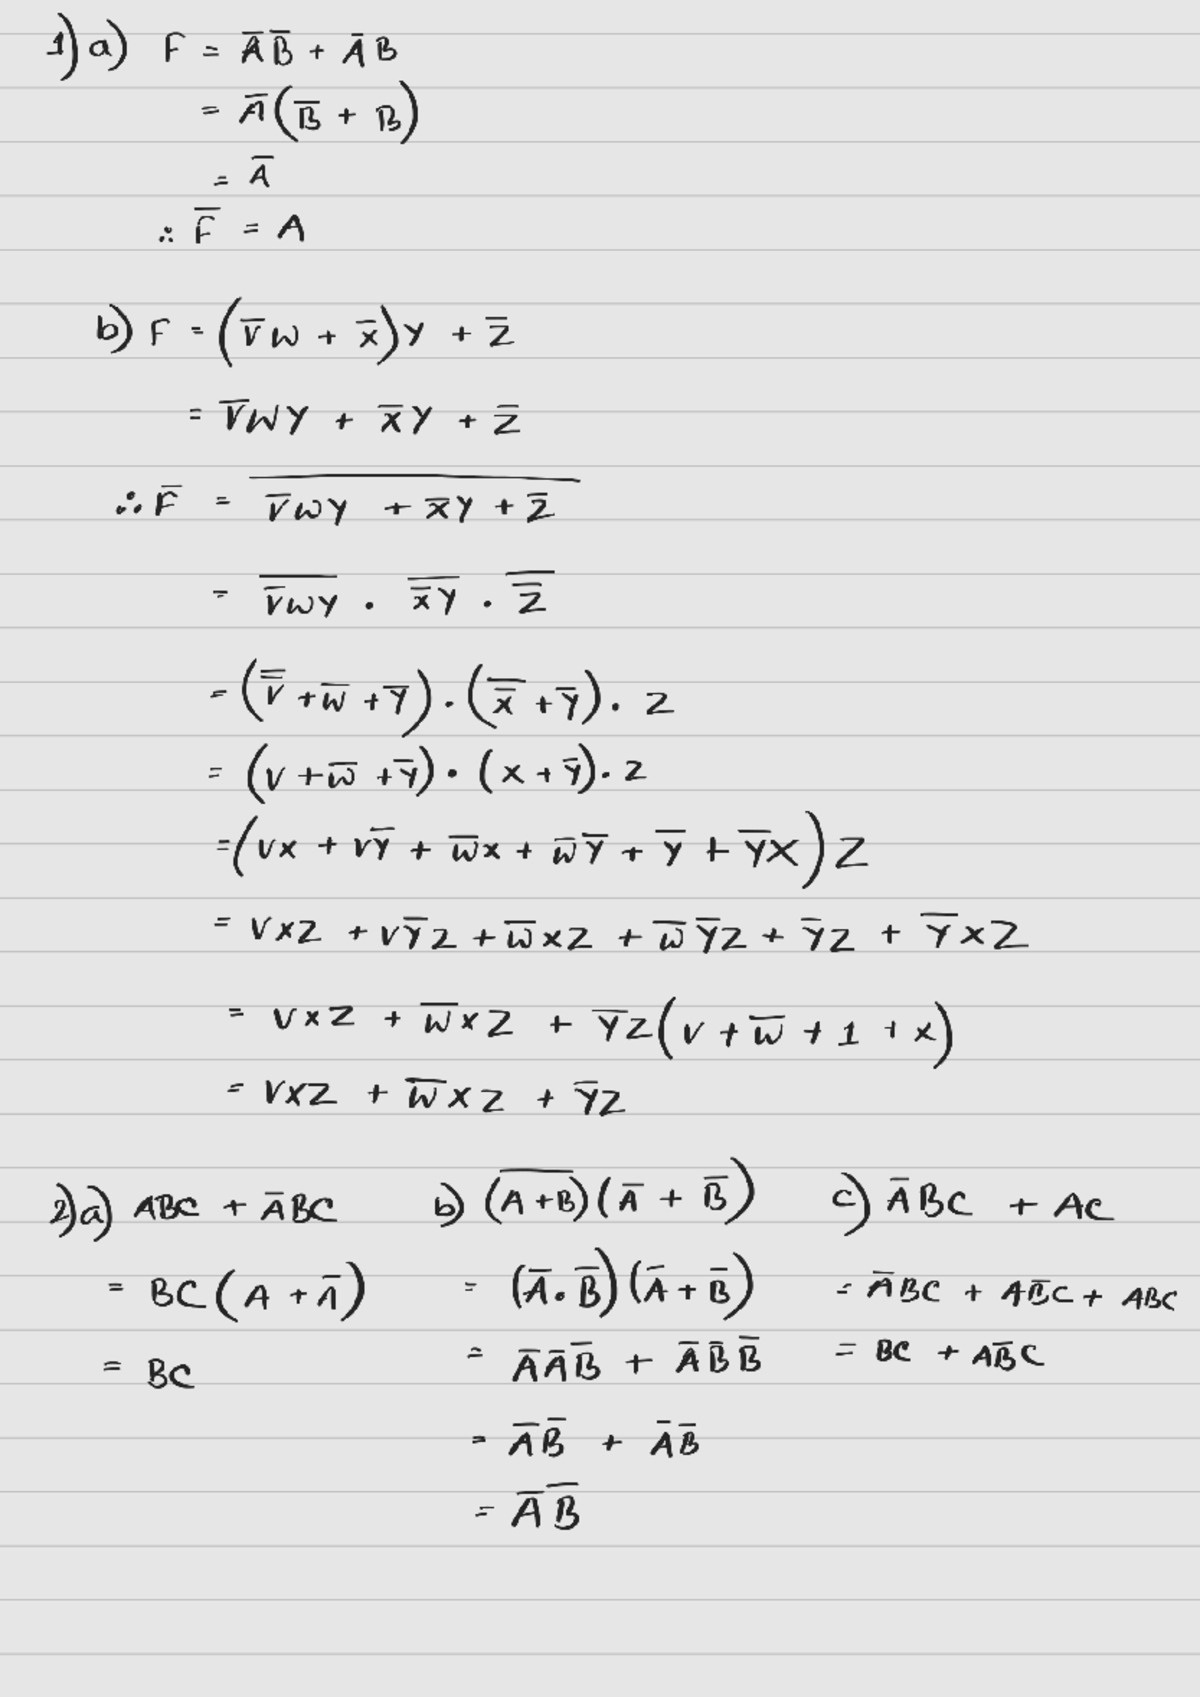 1) a) F = A̅ B̅ + A̅ B
= A̅ (B̅ + B)
= A̅
∴ F̅ = A
b) F = (V̅ W + X̅) Y + Z̅
= V̅ W Y + X̅ Y + Z̅
∴ F̅ = \overline{V̅ W Y + X̅ Y + Z̅}
= \overline{V̅ W Y} . \overline{X̅ Y} . \overline{Z̅}
= (\overline{V̅} + W̅ + Y̅) . (\overline{X̅} + Y̅) . Z
= (V + W̅ + Y̅) . (X + Y̅) . Z
= (VX + VY̅ + W̅X + W̅ Y̅ + Y̅ + Y̅X) Z
= VXZ + VY̅Z + W̅XZ + W̅ Y̅Z + Y̅Z + Y̅XZ
= VXZ + W̅XZ + Y̅Z (V + W̅ + 1 + X)
= VXZ + W̅XZ + Y̅Z
2) a) ABC + A̅BC
= BC (A + A̅)
= BC
b) (\overline{A+B}) (A̅ + B̅)
= (A̅ . B̅) (A̅ + B̅)
= A̅ A̅ B̅ + A̅ B̅ B̅
= A̅ B̅ + A̅ B̅
= A̅ B̅
c) A̅BC + AC
= A̅BC + AB̅C + ABC
= BC + AB̅C